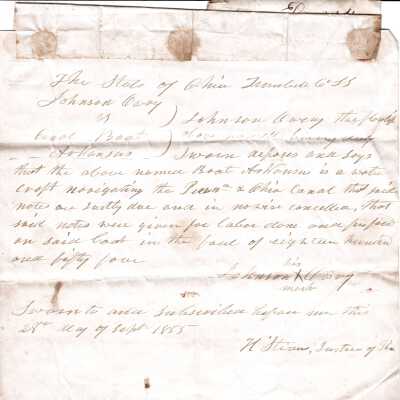 The State of Ohio Trumbull Co SS
Johnson Avery
vs
Canal Boat
Arkansas
Johnson Avery the
Sworn deposes and says
that the above named Boat Arkansas is a water
craft navigating the Penna & Ohio Canal that said
notes are justly due and in no wise cancelled, that
said notes were given for labor done and
on said boat in the year of eighteen hundred
and fifty four
his
Johnson X Avery
mark
Sworn to and subscribed before me this
28th day of Sept 1855
Justice of the